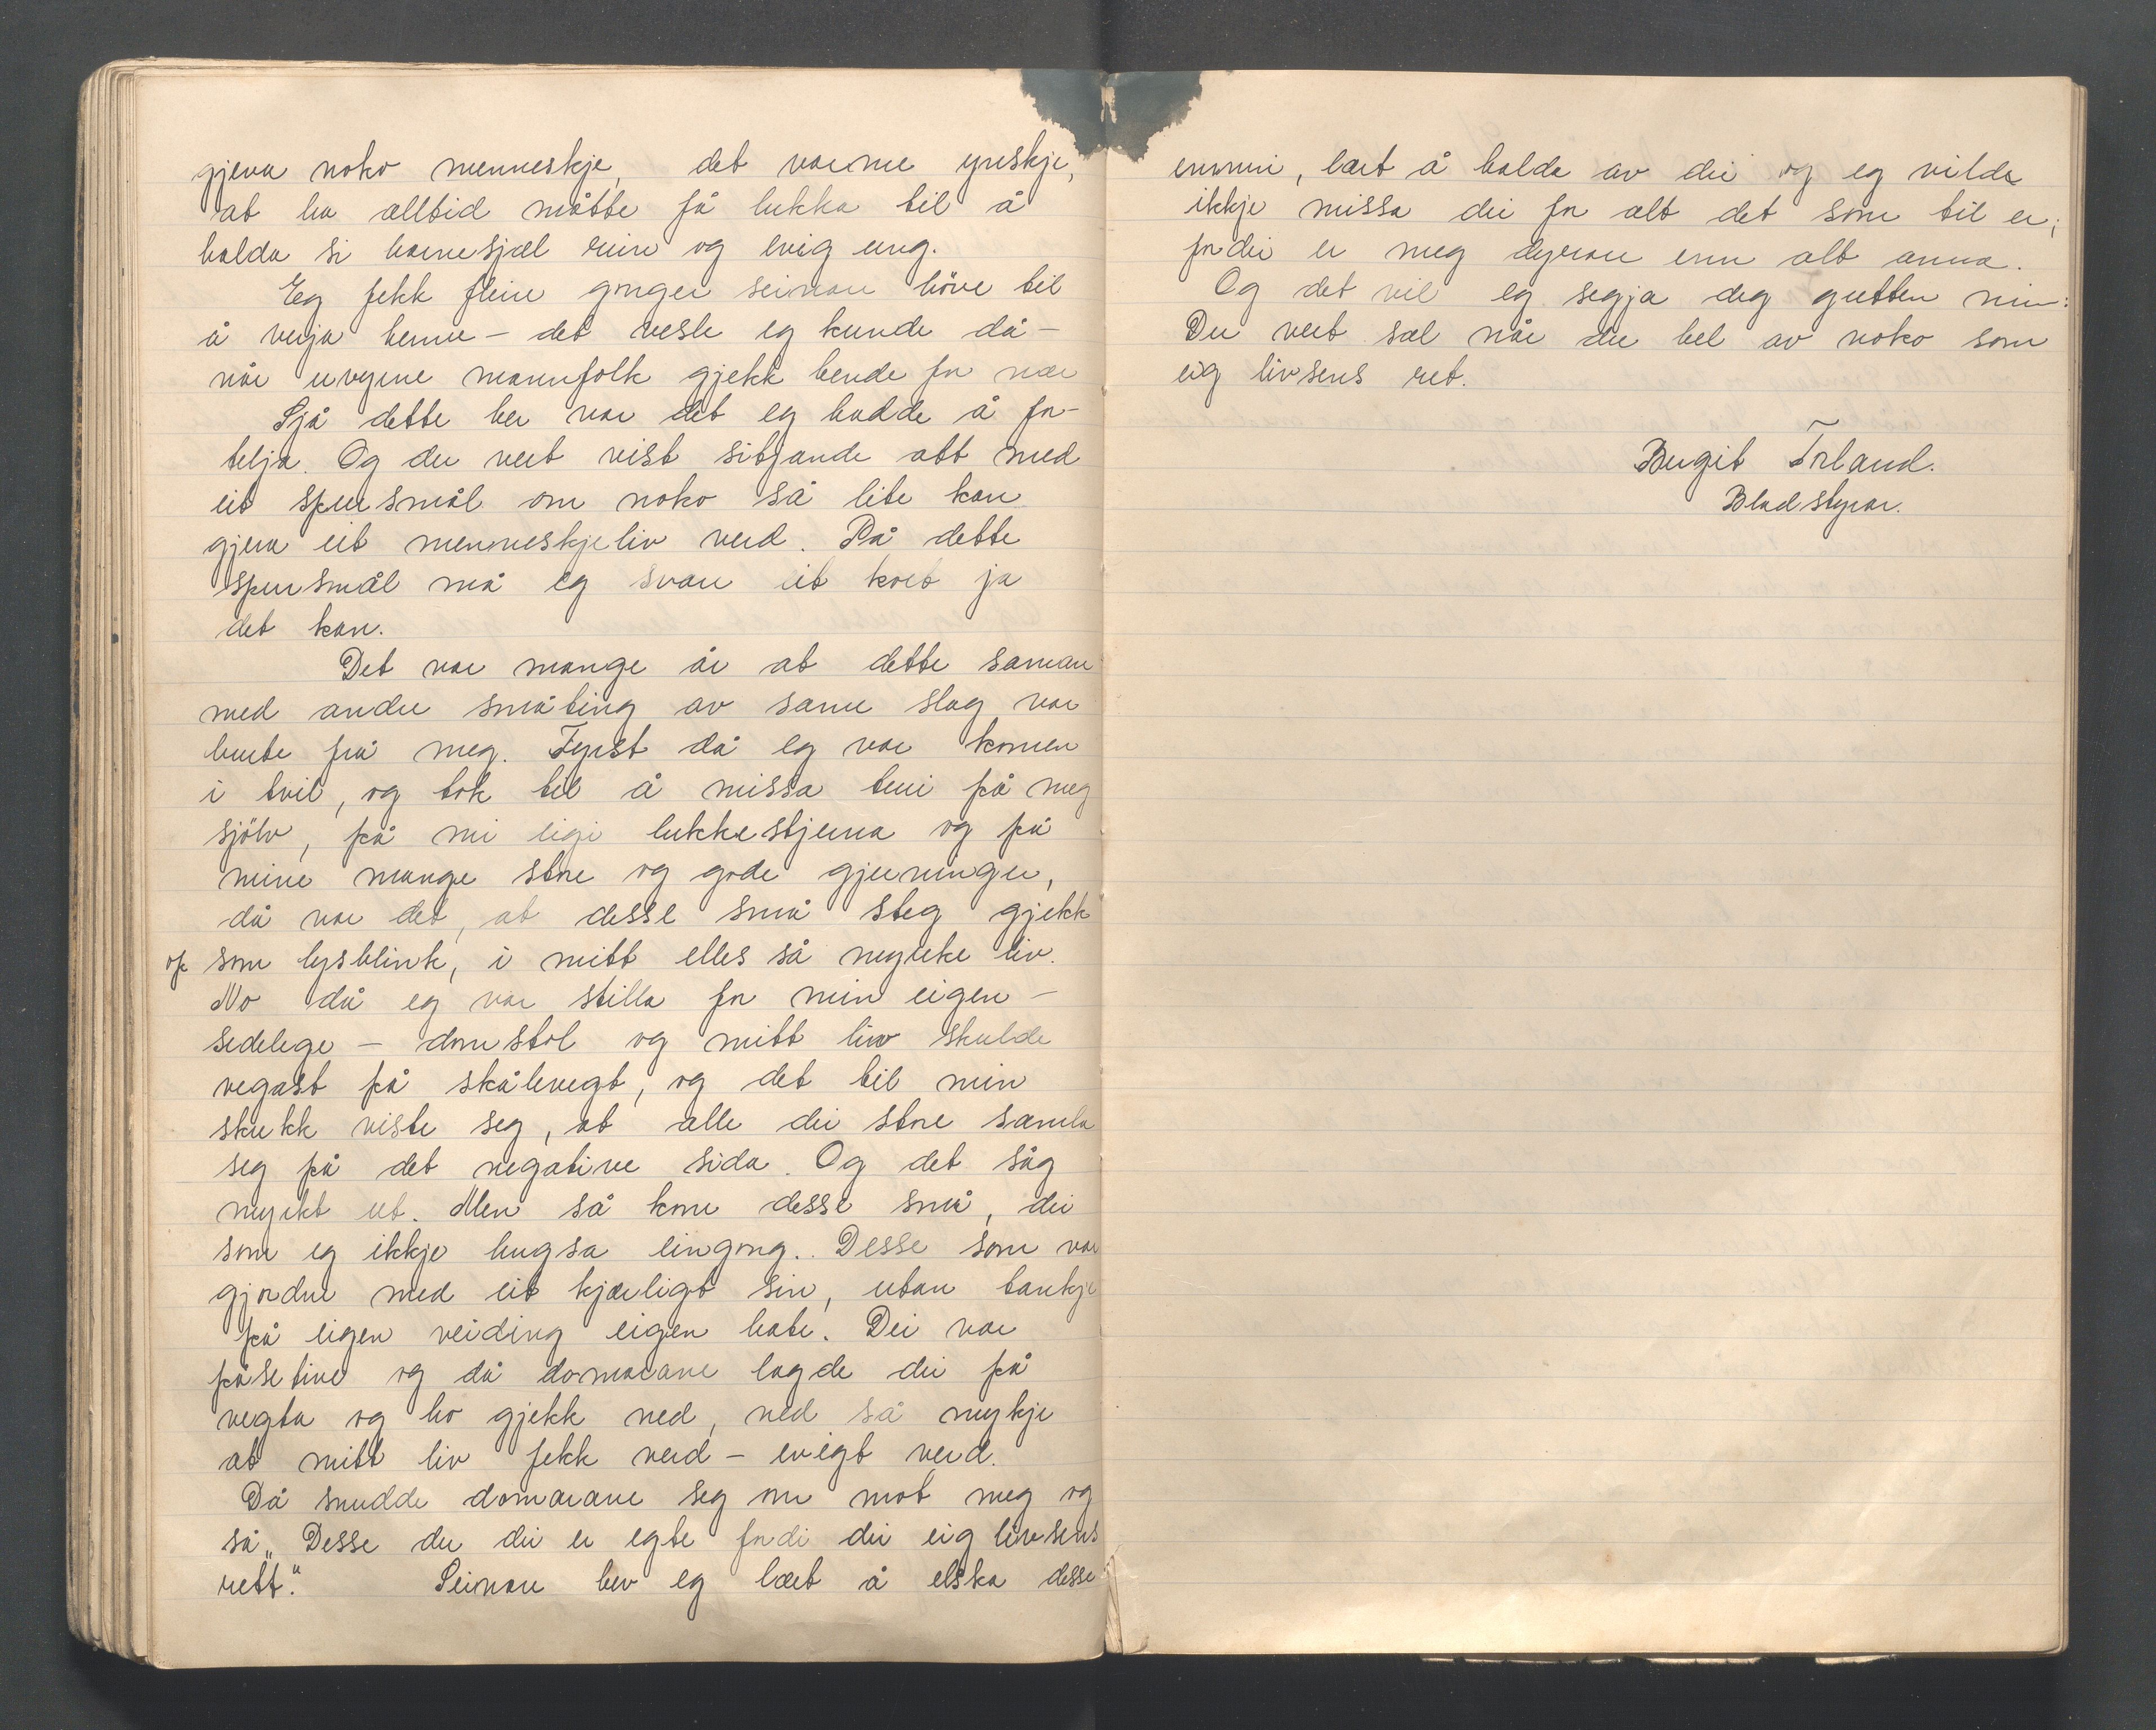 gjeva noko menneskje, det varme ynskje,
at ho alltid måtte få lukka til å
halda si barnesjæl rein og evig ung.
Eg fekk fleire gonger seinare höve til
å verja henne - det vesle eg kunde då -
når uvyrne mannfolk gjekk hende for nær
Sjå dette her var det eg hadde å for-
telja. Og du vert vist sitjande att med
eit spursmål om noko så lite kan
gjeva eit menneskjeliv verd. På dette
spursmål må eg svara eit kort ja
det kan.
Det var mange år at dette saman
med andre småting av same slag var
burte frå meg. Fyrst då eg var komen
i tvil, og tok til å missa trui på meg
sjölv, på mi eigi lukkestjerna og på
mine mange store og gode gjerningar,
då var det, at desse små steg gjekk
op som lysblink, i mitt elles så myrke liv.
No då eg var stilla for min eigen -
sedelege - domstol og mitt liv skulde
vegast på skålevegt, og det til min
skrekk viste seg, at alle dei store samla
seg på det negative sida. Og det såg
myrkt ut. Men så kom desse små, dei
som eg ikkje hugsa eingong. Desse som var
gjordne med eit kjærligt sin, utan tankje
på eigen vinding eigen bate. Dei var
påsetive og då domarane lagde dei på
vegta og ho gjekk ned, ned så mykje
at mitt liv fekk verd - evigt verd.
Då snudde domarane seg om mot meg og
sa „Desse du dei er egte fordi dei eig livsens
rett."  Seinare hev eg lært å elska desse
ermmi, lært å halda av dei og eg vilde
ikkje missa dei for alt det som til er;
for dei er meg dyrare enn alt anna.
Og det vil eg segja deg gutten min:
Du vert sæl når du hel av noko som
eig livsens ret.
Bergit Förland.
Bladstyrar.